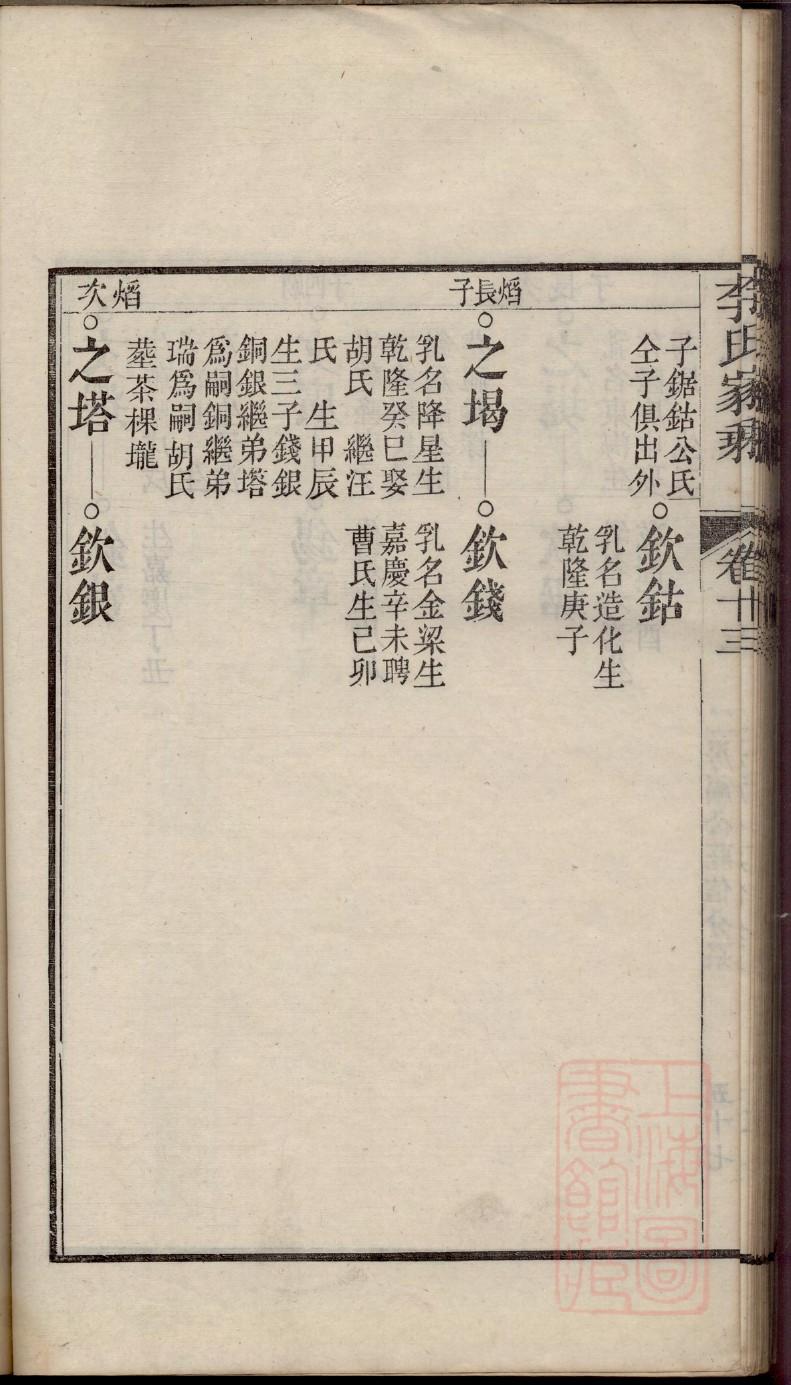 李氏家乘 卷廿三
子鋸鈷公氏
仝子俱出外
欽鈷
乳名造化生
乾隆庚子
熖長子
之堨
乳名降星生
乾隆癸巳娶
胡氏 繼汪
氏 生甲辰
生三子錢銀
銅銀繼弟塔
爲嗣銅繼弟
瑞爲嗣胡氏
塟茶棵壠
欽錢
乳名金粱生
嘉慶辛未聘
曹氏生己卯
熖次
之塔
欽銀
上海圖書館藏